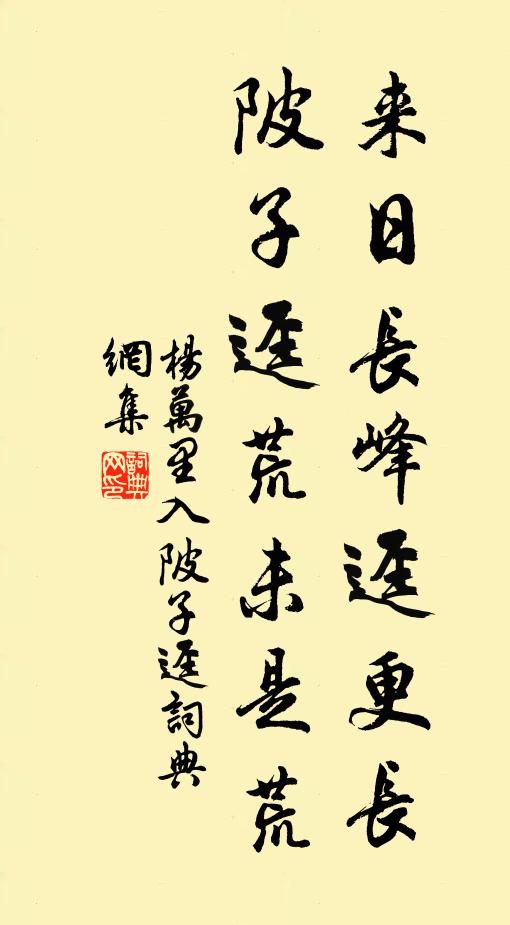 来日長峰逕更長
陂子逕荒未是荒
楊萬里入陂子逕詞典
網集
詞典
网印